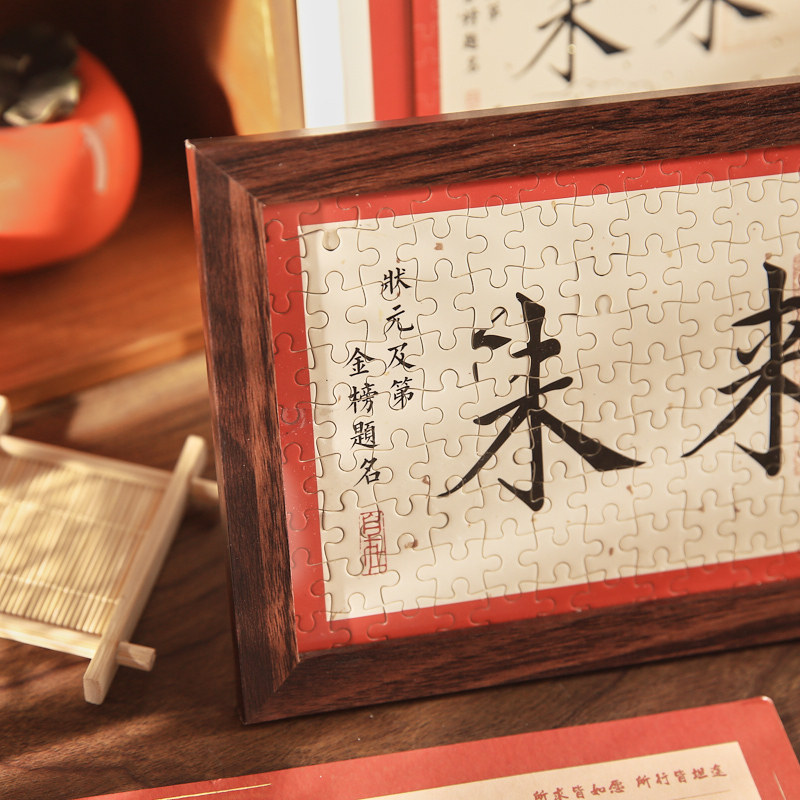 朱
狀元及第
金榜題名
所求皆如愿 所行皆坦途